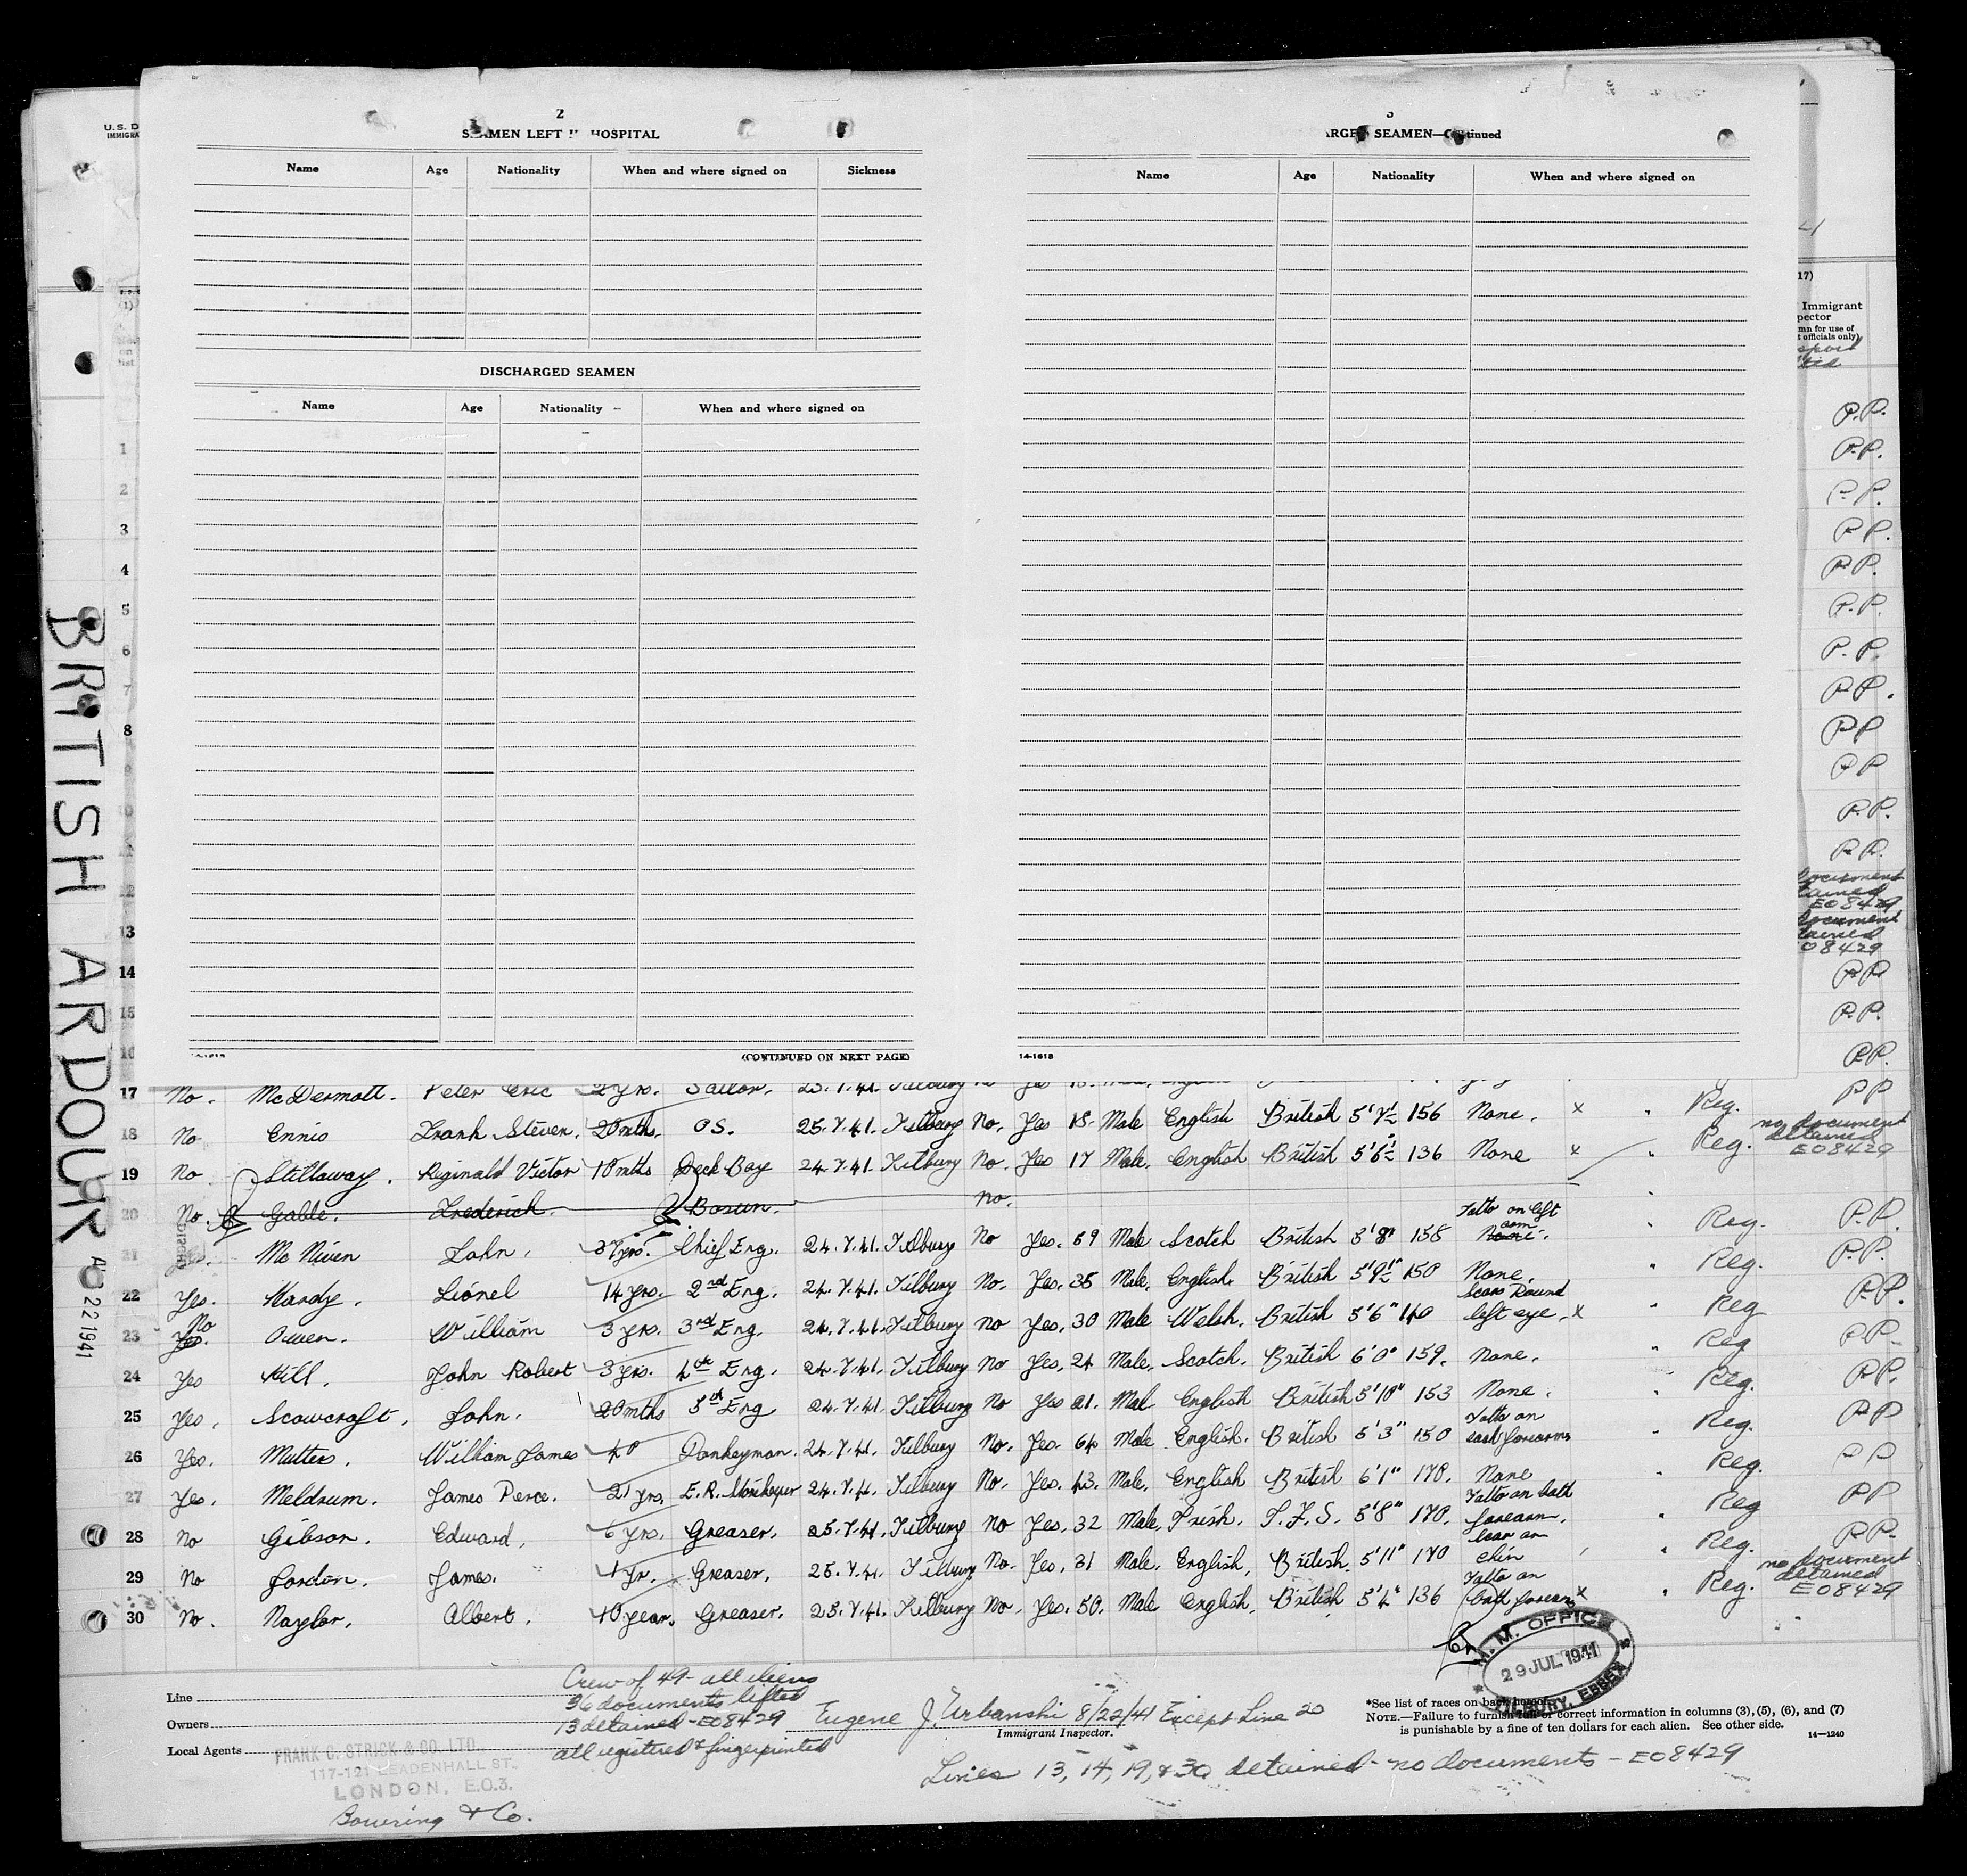 U.S. D
IMMIGRA
2
SEAMEN LEFT IN HOSPITAL
Name Age Nationality When and where signed on Sickness
DISCHARGED SEAMEN
Name Age Nationality When and where signed on
(CONTINUED ON NEXT PAGE)
3
ARGED SEAMEN—Continued
Name Age Nationality When and where signed on
14-1613
17)
Immigrant
pector
mn for use of
t officials only)
P.P.
P.P.
P.P.
P.P.
P.P.
P.P.
P.P.
P.P.
P.P.
P.P.
P.P.
P.P.
document
tained
E08429
document
tained
08429
P.P.
P.P.
P.P.
BRITISH ARDOUR
AUG 22 1941
1
2
3
4
5
6
7
8
9
10
11
12
13
14
15
16
17 No. McDermott. Peter Eric 2 yrs. Sailor. 25.7.41. Tilbury Yes 18. Male. Reg. P.P.
18 No Ennis Frank Steven. 20 mths. OS. 25.7.41. Tilbury No. Yes 18. Male English British 5'7" 156 None. x Reg. no document detained E08429
19 No Stillaway. Reginald Victor 10 mths Deck Boy 24.7.41. Tilbury No. Yes 17 Male. English British 5'6" 136 None x Reg.
20 No. Gable. Frederick. Bosun. no.
21 Yes. McNiven John. 37 yrs. Chief Eng. 24.7.41. Tilbury No Yes. 59 Male Scotch British 5'8" 158 Tatto on left arm None. Reg. P.P.
22 Yes. Hardy. Lionel 14 yrs. 2nd Eng. 24.7.41. Tilbury No. Yes. 35 Male. English. British 5'9" 150 None. Reg. P.P.
23 No Yes. Owen. William 3 yrs. 3rd Eng. 24.7.41. Tilbury No Yes. 30 Male Welsh. British 5'6" 140 Scars Round left eye. x Reg P.P.
24 Yes Hill. John Robert 3 yrs. 4th Eng. 24.7.41. Tilbury No Yes. 24 Male. Scotch. British 6'0" 159. None. Reg P.P.
25 Yes. Scowcroft. John. 20 mths 5th Eng 24.7.41. Tilbury No Yes 21. Mal English British 5'10" 153 None. Reg. P.P.
26 Yes. Mutters. William James 40 Donkeyman. 24.7.41. Tilbury No. Yes. 64 Male English. British 5'3" 150 Tatto on each forearms Reg. P.P.
27 Yes. Meldrum. James Pierce. 21 yrs. E.R. Storekeeper 24.7.41. Tilbury No. Yes. 43. Male. English British 6'1" 170. None Reg. P.P.
28 No Gibson. Edward. 6 yrs. Greaser. 25.7.41. Tilbury No Yes. 32 Male. Irish. I.F.S. 5'8" 170. Tatto on both forearm. Reg P.P.
29 No Jordon. James. 1 yr. Greaser. 25.7.41. Tilbury No. Yes. 31 Male. English. British. 5'11" 170 Scar on chin Reg. P.P.
30 No. Naylor. Albert. 10 years. Greaser. 25.7.41. Tilbury No. Yes. 50. Male English. British 5'4" 136 Tatto on both forearms x Reg. no document detained E08429
M.M. OFFICE
29 JUL 1941
TILBURY, ESSEX
Line
Owners
Local Agents
FRANK C. STRICK & CO. LTD.
117-121 LEADENHALL ST.
LONDON, E.C.3.
Bowring & Co.
Crew of 49 - all aliens
36 documents lifted
13 detained - E08429
all registered & fingerprinted
Eugene J. Urbanski 8/22/41 Except Line 20
Immigrant Inspector.
Lines 13, 14, 19, & 30 detained - no documents - E08429
*See list of races on back hereof.
NOTE.—Failure to furnish full or correct information in columns (3), (5), (6), and (7)
is punishable by a fine of ten dollars for each alien. See other side.
14—1240